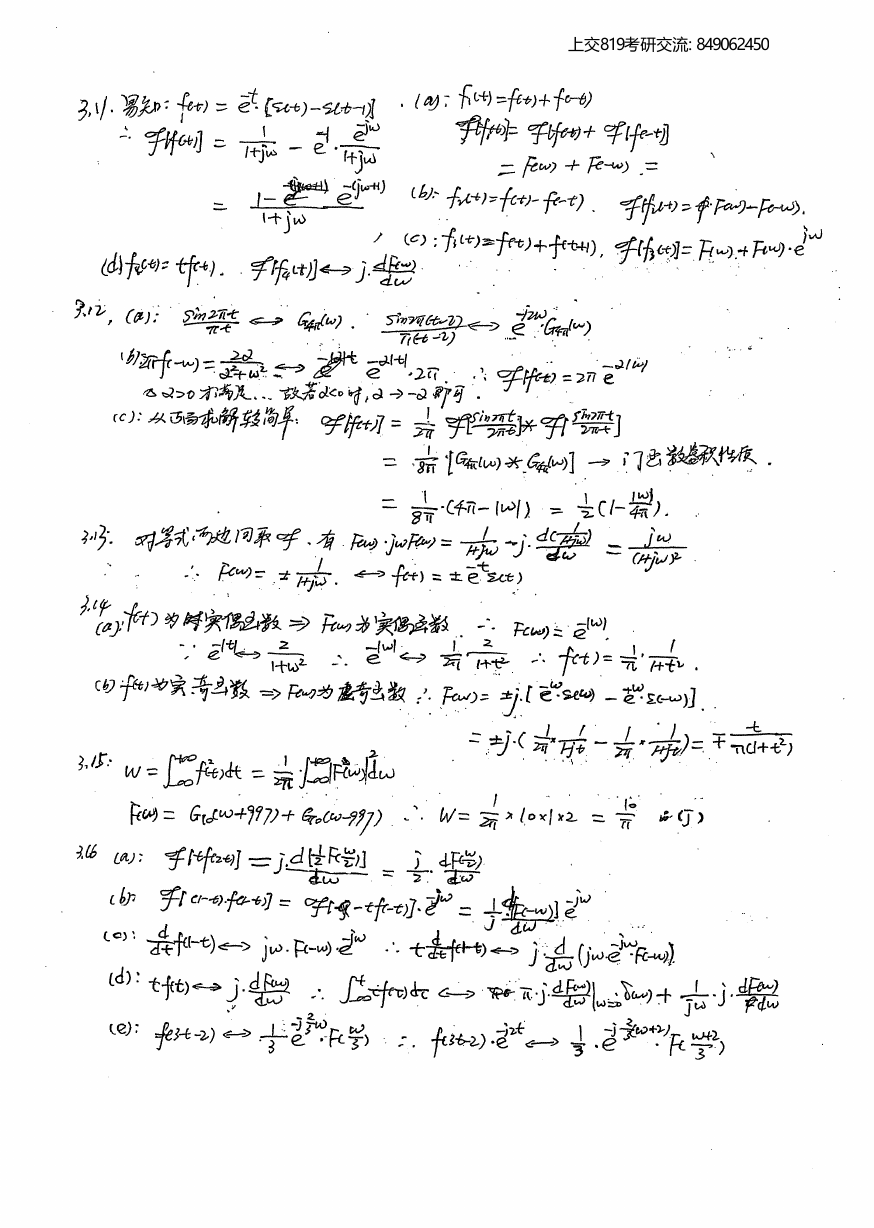 上交819考研交流: 849062450
3.11. 易知: f(t) = e^{-t}·[ε(t)-ε(t-1)]
∴ ℱ[f(t)] = 1/(1+jω) - e^{-1}·e^{-jω}/(1+jω)
= (1-e^{-(jω+1)})/(1+jω)
(a): f₁(t)=f(t)+f(-t)
ℱ[f₁(t)]= ℱ[f(t)]+ ℱ[f(-t)]
= F(ω) + F(-ω) =
(b): f₂(t)=f(t)-f(-t). ℱ[f₂(t)]= F(ω)-F(-ω).
(c): f₃(t)=f(t)+f(t+1), ℱ[f₃(t)]= F(ω)+F(ω)·e^{jω}
(d) f₄(t)= tf(t). ℱ[f₄(t)]↔ j·dF(ω)/dω
3.12, (a): sin2πt/πt ↔ G4π(ω). sin2π(t-2)/π(t-2) ↔ e^{-j2ω}·G4π(ω)
(b) 2πf(-ω)= 2α/(α²+ω²) ↔ e^{-α|t|}·2π ∴ ℱ[f(t)]=2π e^{-α|ω|}
α>0才满足... 故若α<0时, α→-α即可.
(c): 从西局求解较简单: ℱ[f(t)] = 1/2π ℱ[sin2πt/2πt]*ℱ[sin2πt/2πt]
= 1/8π [G4π(ω)*G4π(ω)] → 门函数卷积性质.
= 1/8π·(4π-|ω|) = 1/2(1-|ω|/4π).
3.13. 对等式两边同取ℱ, 有 F(ω)·jωF(ω)= 1/(1+jω) - j·d(1/(1+jω))/dω = jω/(1+jω)²
∴ F(ω)= ±1/(1+jω). ↔ f(t) = ±e^{-t}ε(t)
3.14
(a): f(t)为时实偶函数 ⇒ F(ω)为实偶函数. ∴ F(ω)= e^{-|ω|}
∵ e^{-|t|}↔ 2/(1+ω²) ∴ e^{-|ω|} ↔ 1/2π·2/(1+t²) ∴ f(t)= 1/π·1/(1+t²).
(b) f(t)为实奇函数 ⇒ F(ω)为虚奇函数 ∴ F(ω)= ±j·[e^{-ω}·ε(ω) - e^{ω}·ε(-ω)]
= ±j·(1/2π × 1/(1-jt) - 1/2π × 1/(1+jt))= ∓ t/(π(1+t²))
3.15: W = ∫_{-∞}^{+∞} f²(t)dt = 1/2π·∫_{-∞}^{+∞}|F(ω)|²dω
F(ω)= G₁₀(ω+997)+ G₁₀(ω-997) ∴ W= 1/2π ×10×1×2 = 10/π (J)
3.16 (a): ℱ[tf(2t)] = j·d[1/2 F(ω/2)]/dω = j/2·dF(ω/2)/dω
(b): ℱ[(1-t)·f(1-t)] = ℱ[-tf(-t)]·e^{-jω} = 1/j d[F(-ω)]/dω e^{-jω}
(c): d/dt f(1-t)↔ jω·F(-ω)·e^{-jω} ∴ t d/dt f(1-t)↔ j·d/dω(jω·e^{-jω}·F(-ω))
(d): tf(t)↔ j·dF(ω)/dω ∴ ∫_{-∞}^{t} τf(τ)dτ ↔ π·j·dF(ω)/dω|_{ω=0}·δ(ω)+ 1/jω·j·dF(ω)/dω
(e): f(3t-2)↔ 1/3 e^{-j2/3ω}·F(ω/3) ∴ f(3t-2)·e^{-j2t} ↔ 1/3·e^{-j2/3(ω+2)}·F((ω+2)/3)